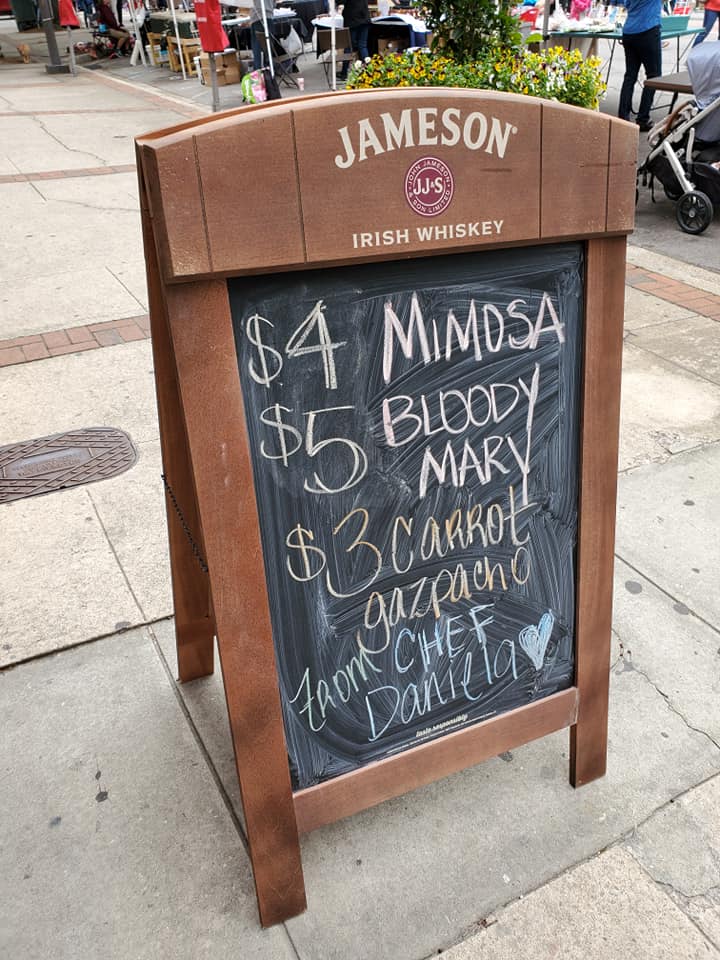 JAMESON
JOHN JAMESON
JJ&S
& SON LIMITED
IRISH WHISKEY
$4 MIMOSA
$5 BLOODY
MARY
$3 CARROT
gazpacho
from CHEF
Daniela
taste responsibly